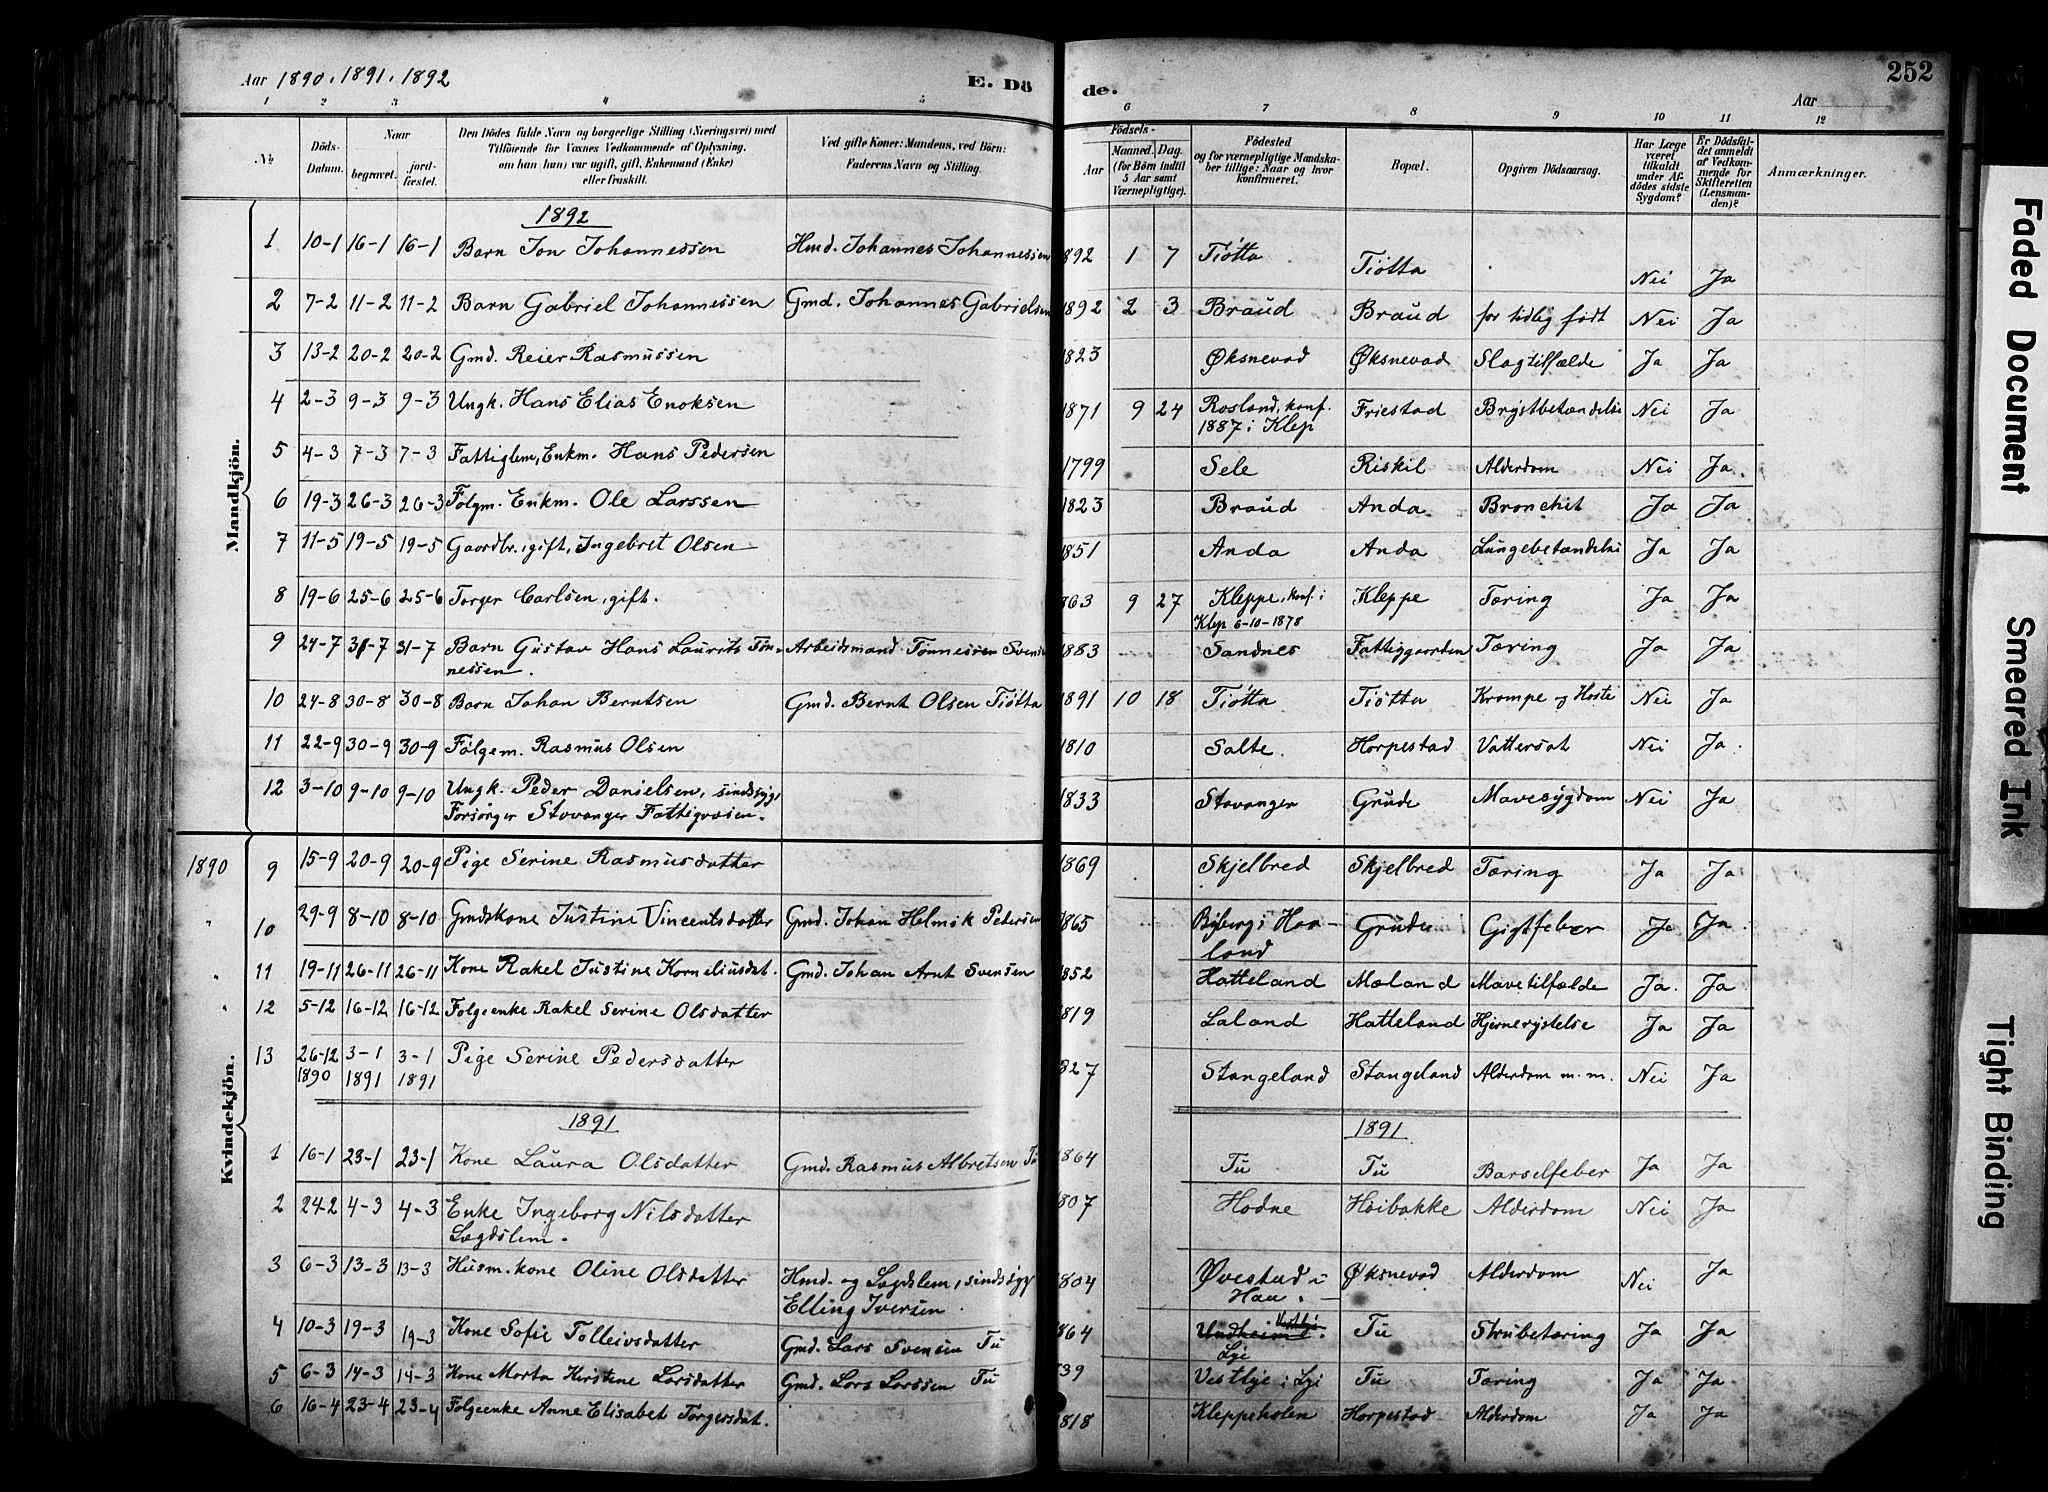 Aar 1890. 1891. 1892
E. Dö
de.
252
Aar
1 2 3 4 5 6 7 8 9 10 11 12
№
Döds-Datum.
Naar
begravet.
jord-fæstet.
Den Dödes fulde Navn og borgerlige Stilling (Næringsvei) med Tilföiende for Voxnes Vedkommende af Oplysning, om han (hun) var ugift, gift, Enkemand (Enke) eller fraskilt.
Ved gifte Koner: Mandens, ved Börn: Faderens Navn og Stilling.
Födsels-
Aar
Maaned. Dag.
(for Börn indtil 5 Aar samt Værnepligtige).
Födested og for værnepligtige Mandskaber tillige: Naar og hvor konfirmeret.
Bopæl.
Opgiven Dödsaarsag.
Har Læge været tilkaldt under Afdödes sidste Sygdom?
Er Dödsfaldet anmeldt af Vedkommende for Skifteretten (Lensmanden)?
Anmærkninger.
Mandkjön.
1892
1 10-1 16-1 16-1 Barn Jon Johannessen Hmd. Johannes Johannessen 892 1 7 Tiøtta Tiøtta Nei Ja
2 7-2 11-2 11-2 Barn Gabriel Johannessen Gmd. Johannes Gabrielsen 1892 2 3 Braud Braud for tidlig født Nei Ja
3 13-2 20-2 20-2 Gmd. Reier Rasmussen 1823 Øksnevad Øksnevad Slagtilfælde Ja Ja
4 2-3 9-3 9-3 Ungk. Hans Elias Enoksen 1871 9 24 Rosland, konf. 1887 i Klep Friestad Brystbetændelse Nei Ja
5 4-3 7-3 7-3 Fattiglem, Enkm. Hans Pedersen 1799 Sele Riskil Alderdom Nei Ja.
6 19-3 26-3 26-3 Følgm. Enkm. Ole Larssen 1823 Braud Anda Bronchit Ja Ja
7 11-5 19-5 19-5 Gaardbr., gift, Ingebret Olsen 1851 Anda Anda Lungebetændelse Ja Ja
8 19-6 25-6 25-6 Torger Carlsen, gift. 863 9 27 Kleppe, konf. i Klep 6-10-1878 Kleppe Tæring Ja Ja
9 24-7 31-7 31-7 Barn Gustav Hans Laurits Tønnessen. Arbeidsmand Tønnessen Svends 1883 Sandnes Fattiggaarden Tæring Ja Ja
10 24-8 30-8 30-8 Barn Johan Berntsen Gmd. Bernt Olsen Tiøtta 1891 10 18 Tiøtta Tiøtta Krampe og Hoste Nei Ja
11 22-9 30-9 30-9 Følgem. Rasmus Olsen 1810 Salte. Horpestad Vattersot Nei Ja.
12 3-10 9-10 9-10 Ungk. Peder Danielsen, sindssyg, Forsørger Stavanger Fattigvæsen. 1833 Stavanger Grude Mavesygdom Nei Ja
Kvindekjön.
1890 9 15-9 20-9 20-9 Pige Serine Rasmusdatter 1869 Skjelbred Skjelbred Tæring Ja Ja
" 10 29-9 8-10 8-10 Gmdskone Justine Vincentsdatter Gmd. Johan Helmik Pedersen 1865 Byberg i Haaland Grude Gigtfeber Ja Ja.
" 11 19-11 26-11 26-11 Kone Rakel Justine Korneliusdat. Gmd. Johan Arnt Svensen 1852 Hatteland Mæland Mavetilfælde Ja. Ja.
" 12 5-12 16-12 16-12 Følgeenke Rakel Serine Olsdatter 1819 Laland Hatteland Hjernerystelse Ja Ja
13 26-12 1890 3-1 1891 3-1 1891 Pige Serine Pedersdatter 827 Stangeland Stangeland Alderdom m.m. Nei Ja
1891 1891
1 16-1 23-1 23-1 Kone Laura Olsdatter Gmd. Rasmus Albretsen Tu 1864 Tu Tu Barselfeber Ja Ja
2 24-2 4-3 4-3 Enke Ingeborg Nilsdatter Lægdslem. 1807 Hodne Høibakke Alderdom Nei Ja
3 6-3 13-3 13-3 Husm. kone Oline Olsdatter Hmd. og Lægdslem, sindssyg Elling Iversen. 1804 Øvestad i Haa. Øksnevad Alderdom Nei Ja
4 10-3 19-3 19-3 Kone Sofie Tolleivsdatter Gmd. Lars Svensen Tu 864 Undheim i Vestlye Lye Tu Strubetæring Ja Ja
5 6-3 14-3 14-3 Kone Marta Kirstine Larsdatter Gmd. Lars Larssen Tu 39 Vestlye i Lye Tu Tæring Ja Ja
6 16-4 23-4 23-4 Følgeenke Anne Elisabet Torgersdat. 818 Kleppeholen Horpestad Alderdom Ja Ja
Faded Document
Smeared Ink
Tight Binding